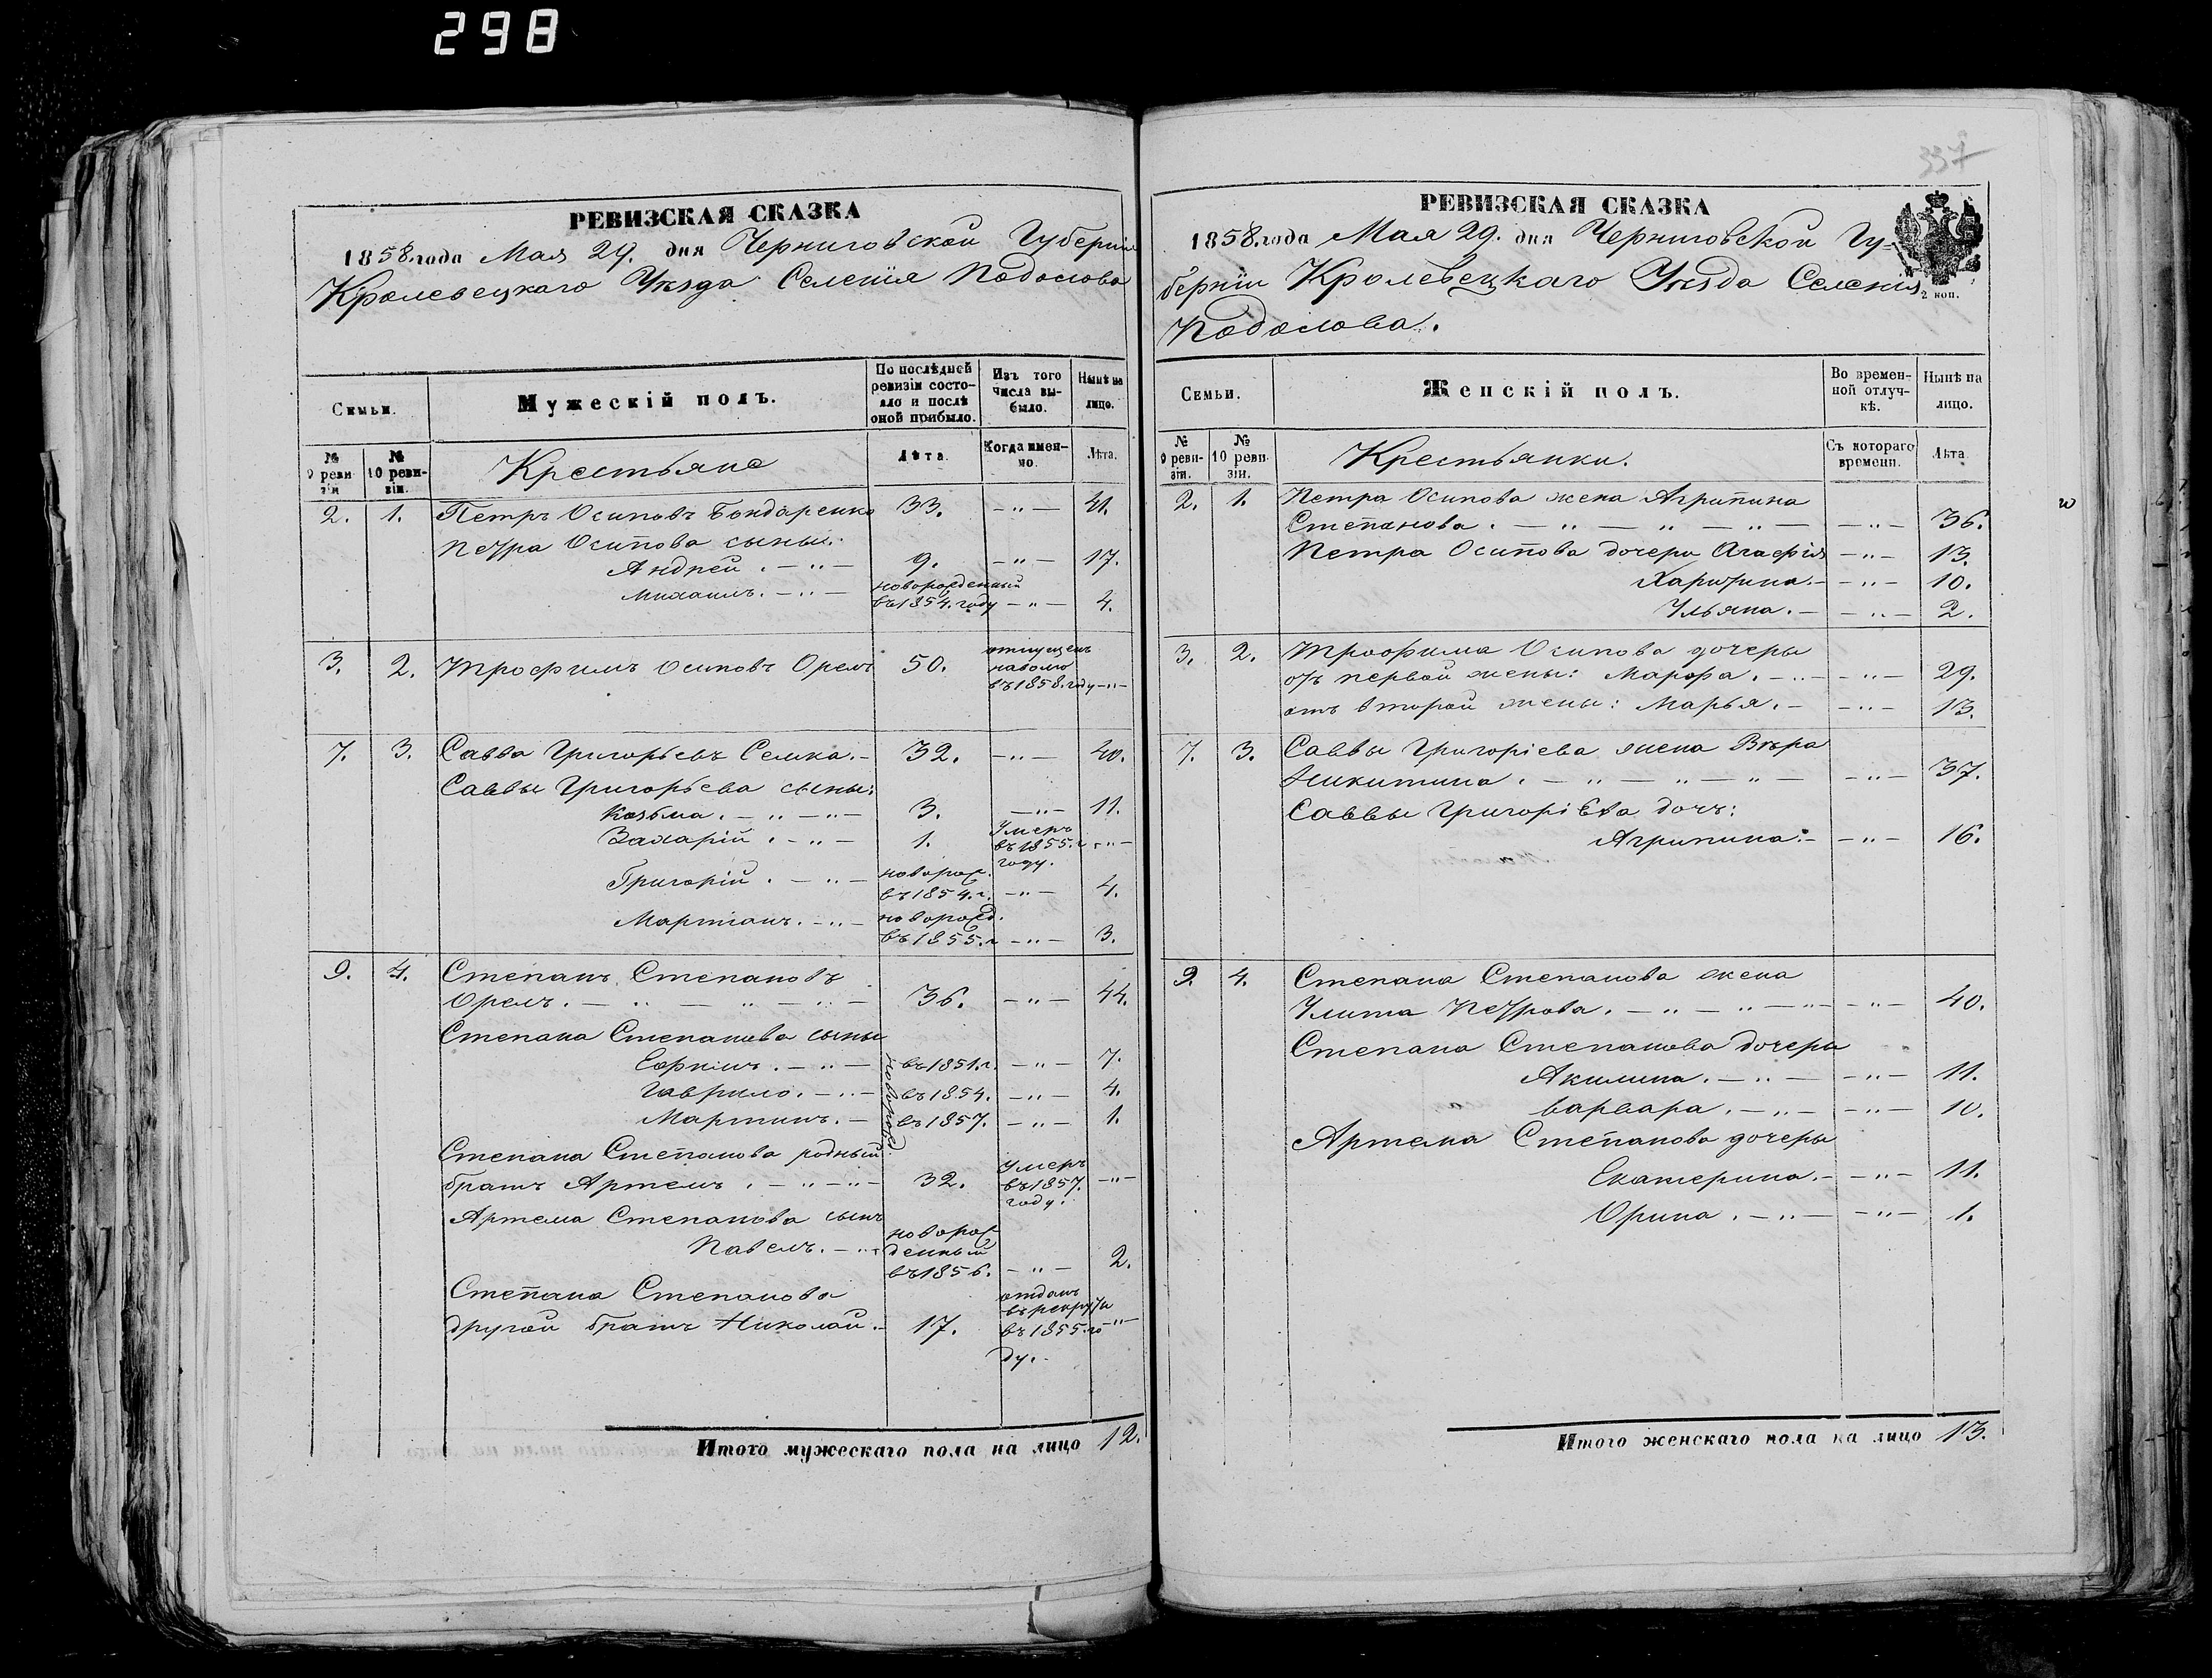 298
РЕВИЗСКАЯ СКАЗКА
1858 года Мая 29. дня Черниговской Губерніи
Кролевецкаго Уѣзда Селенія Подолова
Семьи.
Мужескій полъ.
По послѣдней ревизіи состояло и послѣ оной прибыло.
Изъ того числа выбыло.
Нынѣ на лицо.
№ 9 ревизіи
№ 10 ревизіи.
Крестьяне
Лѣта.
Когда именно.
Лѣта.
2. 1. Петръ Осиповъ Бондаренко 33. —"— 41.
Петра Осипова сыны:
Андрей. —"— 9. —"— 17.
Михаилъ. —"— новорожденный въ 1854. году —"— 4.
3. 2. Трофимъ Осиповъ Орелъ 50. отпущенъ наволю въ 1858. году —"—
7. 3. Савва Григорьевъ Селика. — 32. —"— 40.
Саввы Григорьева сыны:
Козьма. —"—"— 3. —"— 11.
Захарій. —"— 1. Умеръ въ 1855. году. —"—
Григорій. —"— новорож. въ 1854. г. —"— 4.
Мартинъ. —"— новорожд. въ 1855. г. —"— 3.
9. 4. Степанъ Степановъ
Орелъ. —"—"—"— 36. —"— 44.
Степана Степанова сыны
Ефимъ. —"— новорож. въ 1851. г. —"— 7.
Гаврило. —"— въ 1854. —"— 4.
Мартинъ. — въ 1857. —"— 1.
Степана Степанова родный
братъ Артемъ. —"—"— 32. Умеръ въ 1857. году. —"—
Артема Степанова сынъ
Павелъ. —"— новорожденный въ 1856. —"— 2.
Степана Степанова
другой братъ Николай. — 17. отданъ въ рекруты въ 1855. году. —"—
Итого мужескаго пола на лицо 12.
337
РЕВИЗСКАЯ СКАЗКА
1858. года Мая 29. дня Черниговской Гу-
берніи Кролевецкаго Уѣзда Селенія
2 коп.
Подолова.
Семьи.
Женскій полъ.
Во временной отлучкѣ.
Нынѣ на лицо.
№ 9 ревизіи.
№ 10 ревизіи.
Крестьянки.
Съ котораго времени.
Лѣта.
2. 1. Петра Осипова жена Агрипина
Степанова. —"—"—"— —"— 36.
Петра Осипова дочери Агафія —"— 13.
Харитина. — —"— 10.
Ульяна. — —"— 2.
3. 2. Трофима Осипова дочери
отъ первой жены: Марфа. —"— —"— 29.
отъ второй жены: Марья. — —"— 13.
7. 3. Саввы Григоріева жена Вѣра
Никитина. —"—"—"— —"— 37.
Саввы Григоріева дочь:
Агрипина. — —"— 16.
9. 4. Степана Степанова жена
Улита Петрова. —"—"—"— —"— 40.
Степана Степанова дочери
Акилина. —"— —"— 11.
Варвара. —"— —"— 10.
Артема Степанова дочери
Екатерина. — —"— 11.
Орина. —"— —"— 1.
Итого женскаго пола на лицо 13.